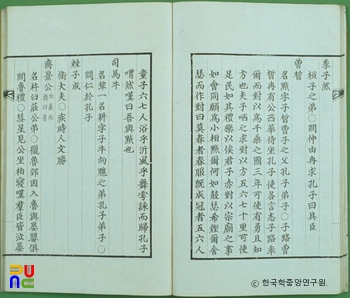 季子然
桓子之弟○問仲由冉求孔子曰具臣
曾晳
名點字子晳曾子之父孔子弟子○子路曾
晳冉有公西華侍坐孔子使各言志子路率
爾而對以爲千乘之國三年可使有勇且知
方也夫子哂之求對以方五六七十里可使
足民如其禮樂以俟君子赤對以宗廟之事
如會同願爲小相點爾何如鼓瑟希鏗爾舍
瑟而作對曰莫春者春服既成冠者五六人
童子六七人浴乎沂風乎舞雩詠而歸孔子
喟然嘆曰吾與點也
司馬牛
名犂一名耕字子牛向魋之弟孔子弟子○
問仁於孔子
棘子成
衛大夫○疾時人文勝
齊景公
名杵臼莊公弟○獵魯郊因入魯與晏嬰俱
問魯禮○彗星見公坐柏寢嘆羣臣皆泣晏
ⓒ한국학중앙연구원.